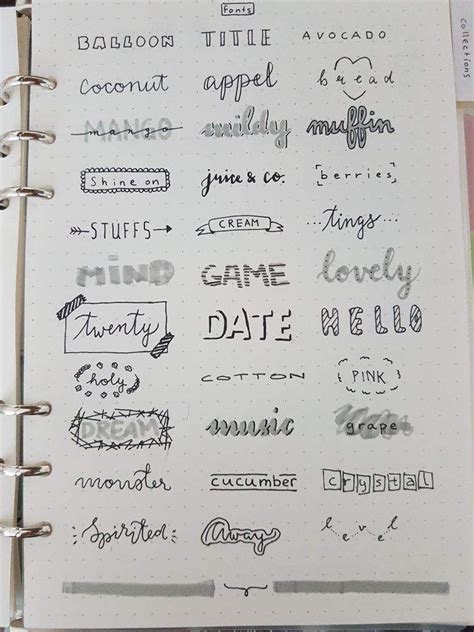 Fonts
collections
BALLOON TITLE AVOCADO
coconut appel bread
MANGO mildy muffin
Shine on juice & co. berries
STUFFS CREAM ...tings...
MIND GAME lovely
twenty DATE HELLO
holy COTTON PINK
DREAM music grape
monster cucumber crystal
Spirited Away level